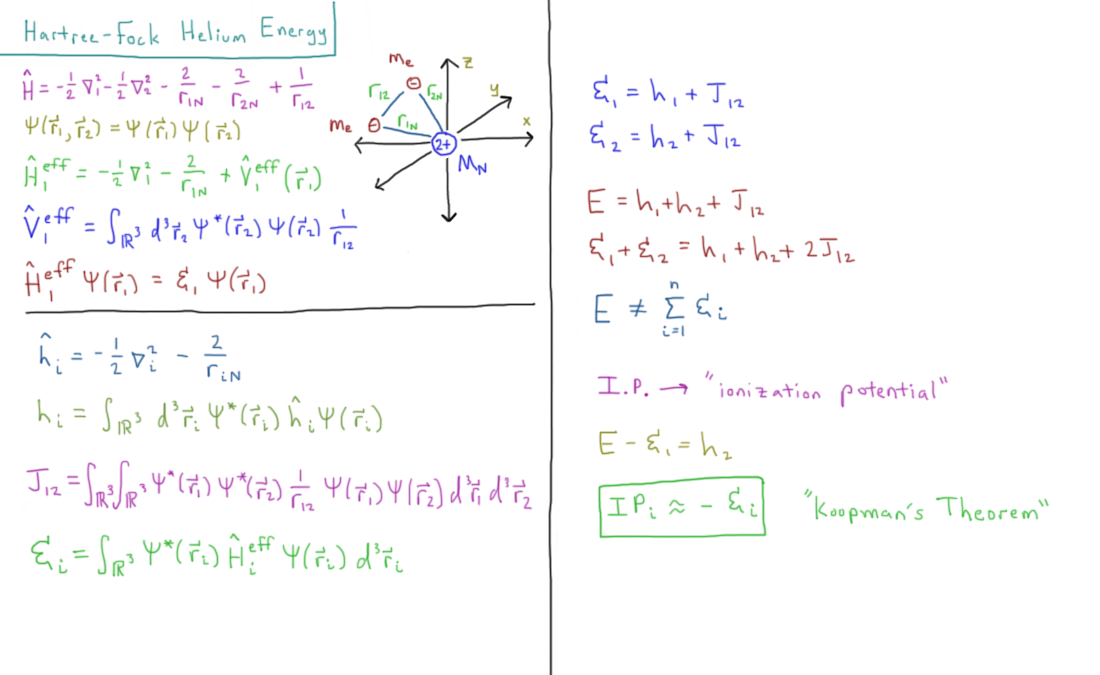 Hartree-Fock Helium Energy
Ĥ = -½∇₁² - ½∇₂² - 2/r₁N - 2/r₂N + 1/r₁₂
Ψ(r⃗₁, r⃗₂) = Ψ(r⃗₁)Ψ(r⃗₂)
Ĥ₁ᵉᶠᶠ = -½∇₁² - 2/r₁N + V̂₁ᵉᶠᶠ(r⃗₁)
V̂₁ᵉᶠᶠ = ∫ℝ³ d³r⃗₂ Ψ*(r⃗₂) Ψ(r⃗₂) 1/r₁₂
Ĥ₁ᵉᶠᶠ Ψ(r⃗₁) = ε₁ Ψ(r⃗₁)
me
z
r₁₂
⊖
r₂N
y
me
⊖
r₁N
x
2+
MN
ĥᵢ = -½∇ᵢ² - 2/rᵢN
hᵢ = ∫ℝ³ d³r⃗ᵢ Ψ*(r⃗ᵢ) ĥᵢ Ψ(r⃗ᵢ)
J₁₂ = ∫ℝ³∫ℝ³ Ψ*(r⃗₁) Ψ*(r⃗₂) 1/r₁₂ Ψ(r⃗₁) Ψ(r⃗₂) d³r⃗₁ d³r⃗₂
εᵢ = ∫ℝ³ Ψ*(r⃗ᵢ) Ĥᵢᵉᶠᶠ Ψ(r⃗ᵢ) d³r⃗ᵢ
ε₁ = h₁ + J₁₂
ε₂ = h₂ + J₁₂
E = h₁ + h₂ + J₁₂
ε₁ + ε₂ = h₁ + h₂ + 2J₁₂
E ≠ Σᵢ₌₁ⁿ εᵢ
I.P. → "ionization potential"
E - ε₁ = h₂
IPᵢ ≈ - εᵢ "Koopman's Theorem"